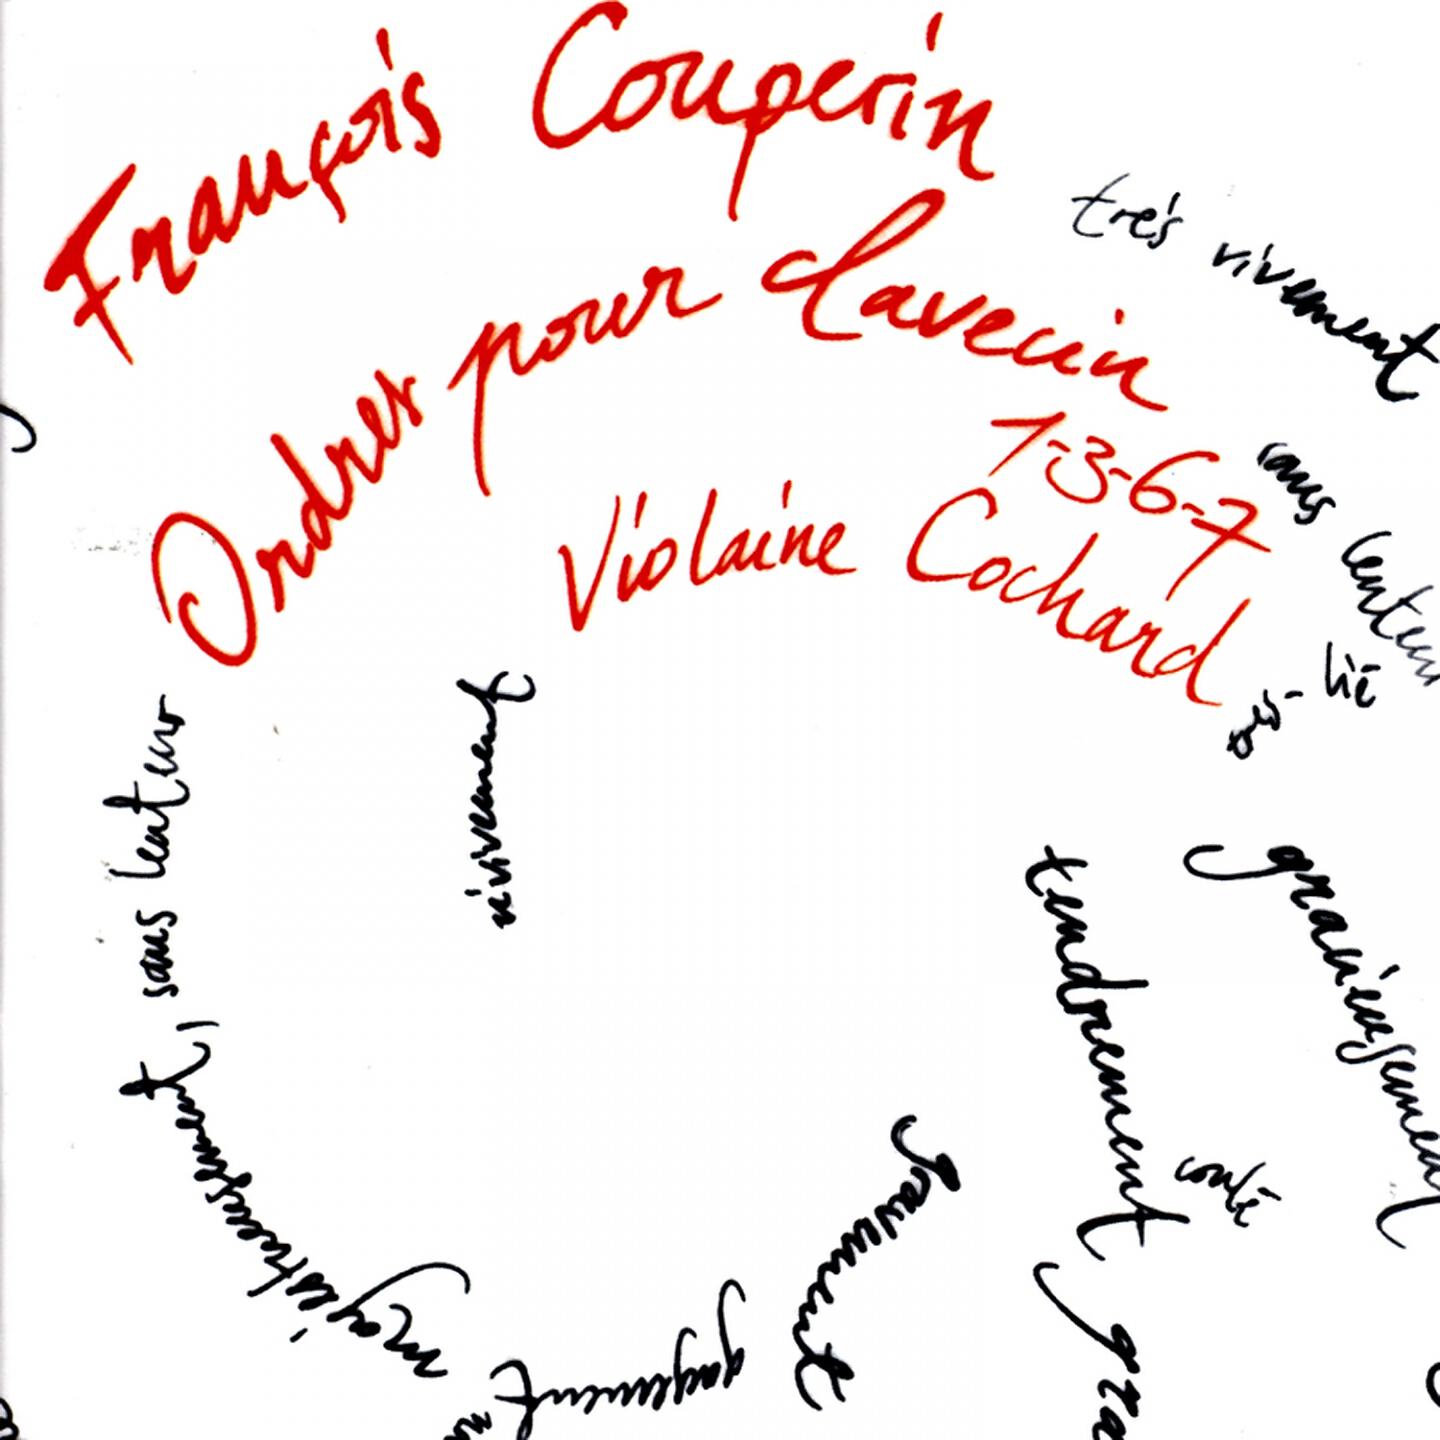 François Couperin
Ordres pour clavecin
1-3-6-7
Violaine Cochard
très vivement
sans lenteur
lié
vivement
sans lenteur
majestueusement,
gayement
gravement
tendrement
coulé
gracieusement